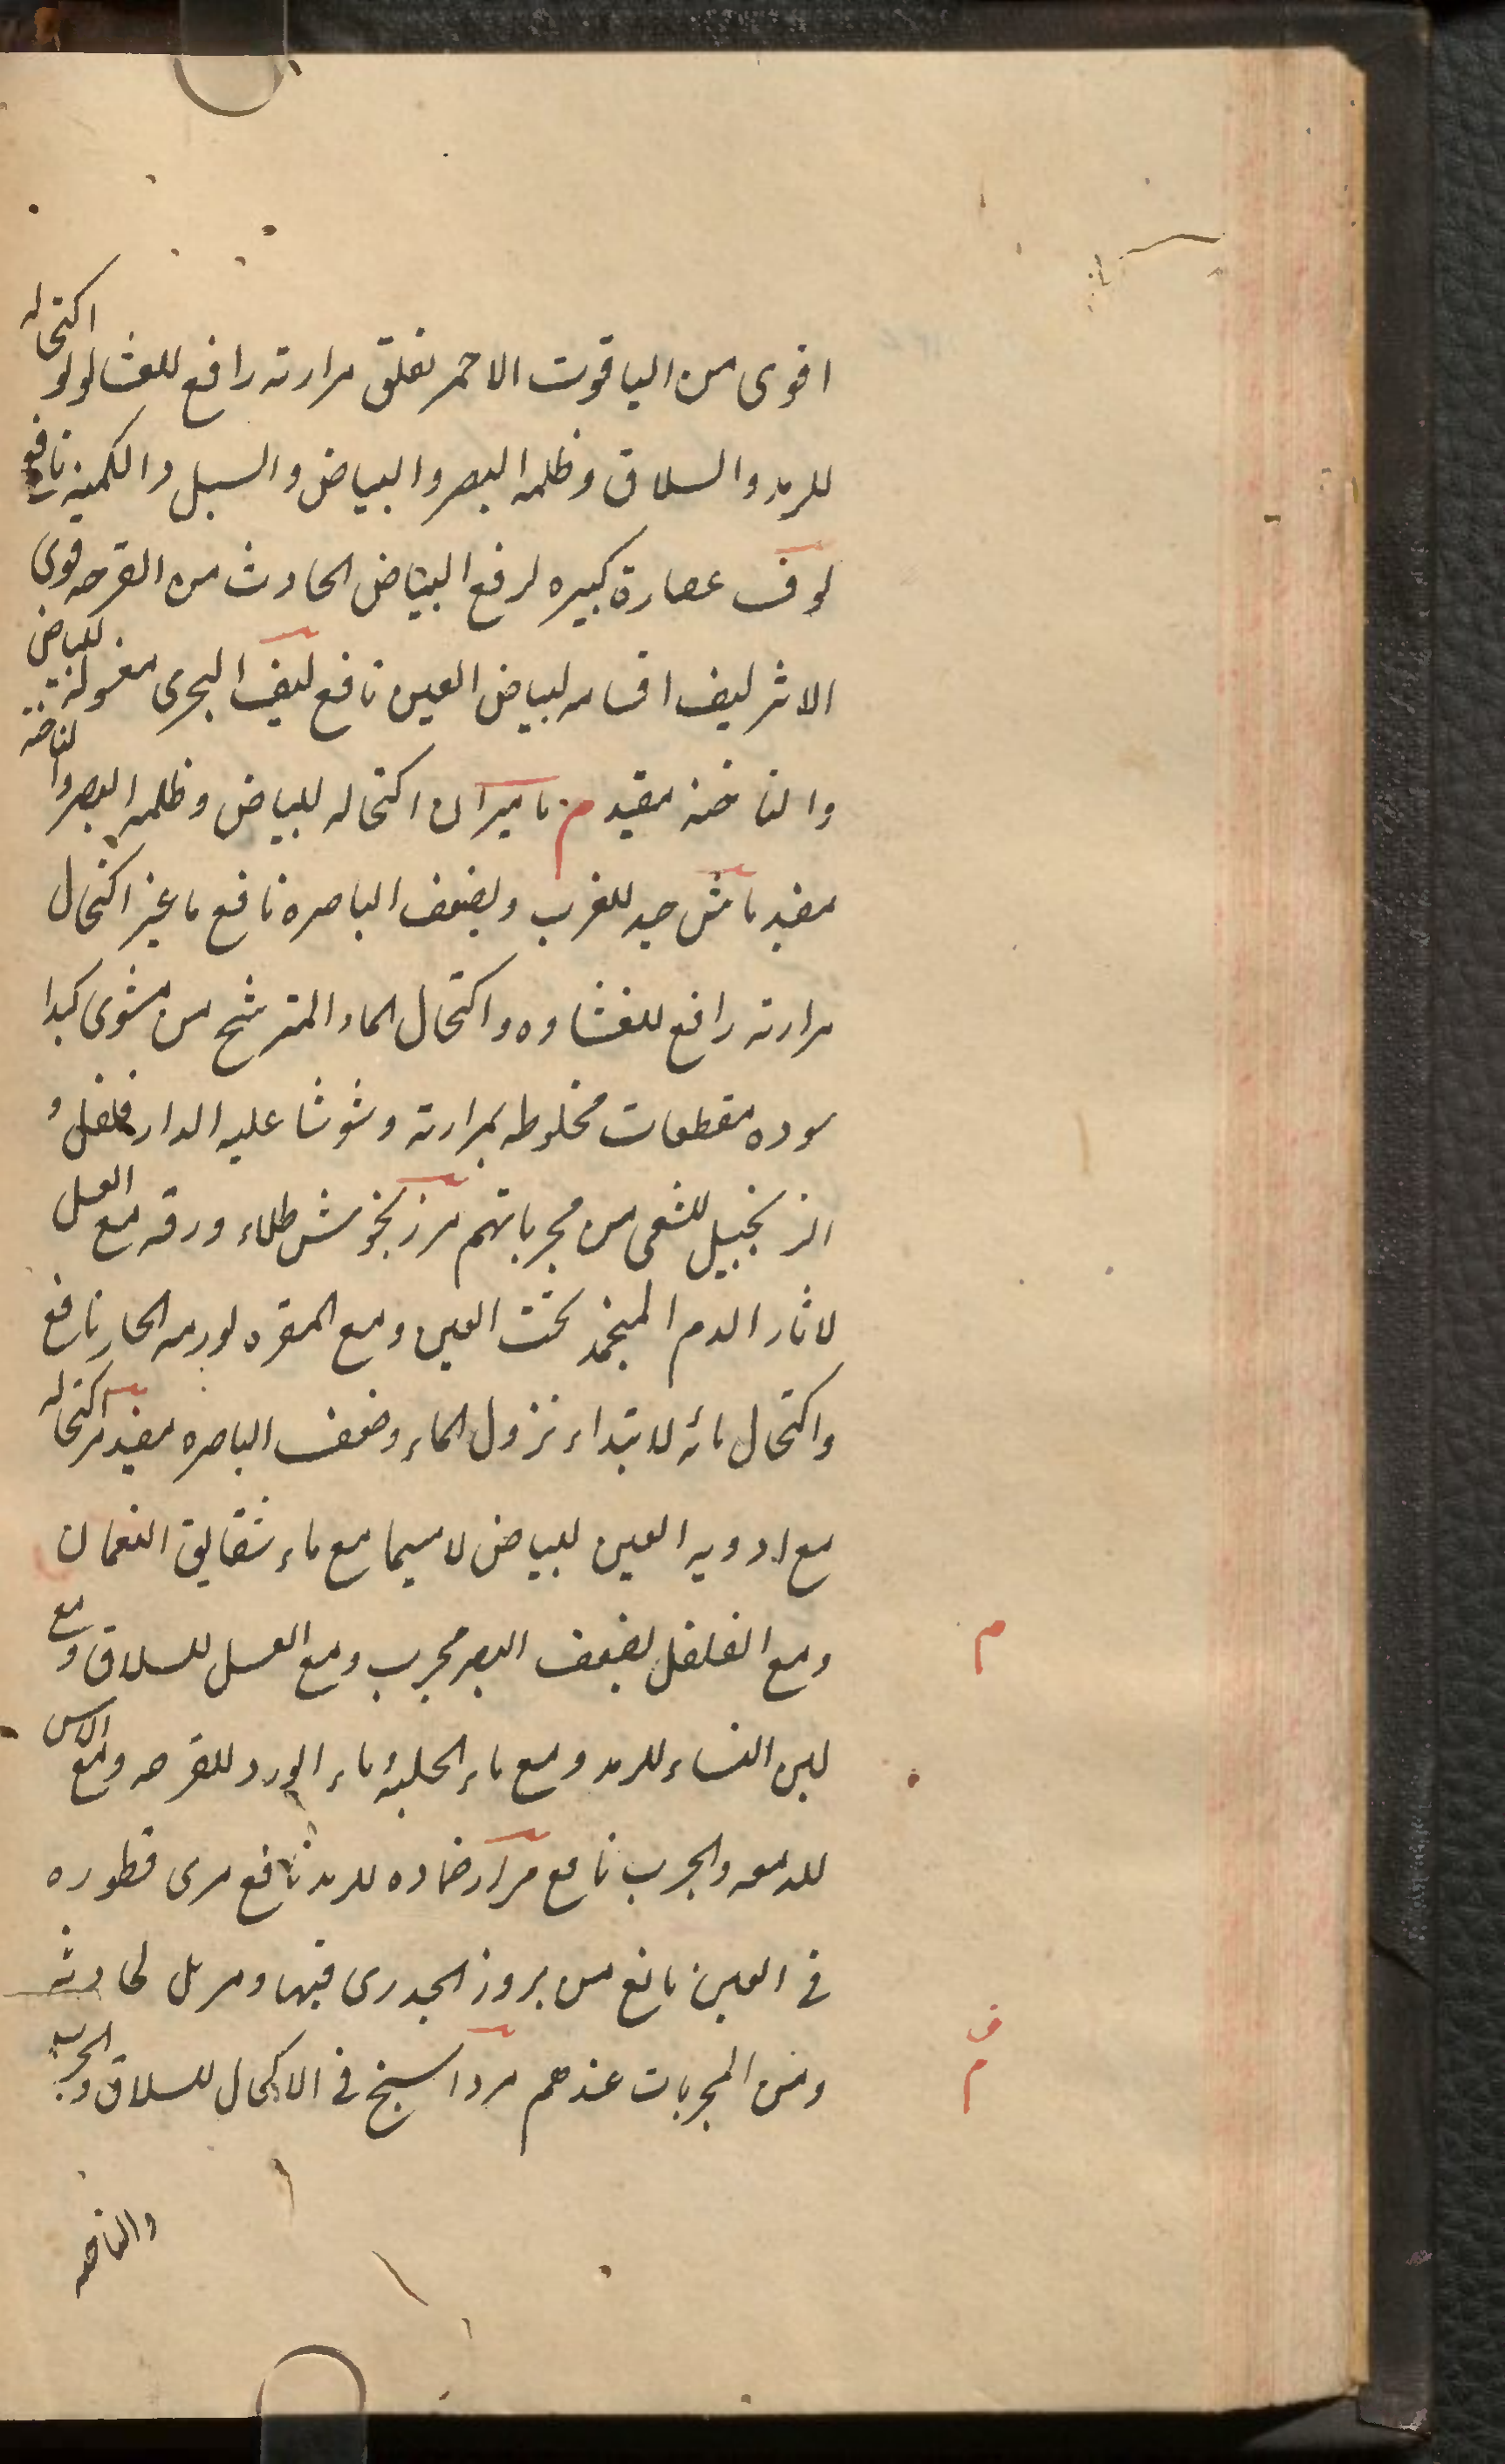 اقوى من الياقوت الاحمر لقلق مرارته رافع للغشا لولو اكتحاله
للرمد والسلاق وظلمه البصر والبياض والسبل والكمنه نافع
لوف عصارة كبيره لرفع البياض الحادث من القرحه قوى
الاثر ليف اقسامه لبياض العين نافع ليف البحرى مغسوله للبياض
والناخنه مفيد م ماميران اكتحاله للبياض وظلمه البصر والناخنه
مفيد ماش جيد للغرب ولضعف الباصره نافع ماعز اكتحال
مرارته رافع للغشاوه واكتحال الماء المترشح من مشوى كبدا
سوده مقطعات مخلوطه بمرارته وشوشا عليه الدار فلفل و
الزنجبيل للشعى من مجرباتهم مرزنجوش طلاء ورقه مع العسل
لاثار الدم المنجمد تحت العين ومع المقره لورمه الحار نافع
واكتحال مائه لابتداء نزول الماء وضعف الباصره مفيد مر اكتحاله
مع ادويه العين للبياض لاسيما مع ماء شقايق النعمان
ومع الفلفل لضعف البصر مجرب ومع العسل للسلاق و مع
م
لبن النساء للرمد ومع ماء الحلبة ماء الورد للقرحه ومع الاس
للدمعه والجرب نافع مرار ضماده للرمد نافع مرى قطوره
فى العين مانع من بروز الجدرى فيها ومزيل لحادثه
ومن المجربات عندهم مرداسنج فى الاكحال للسلاق والجرب
م
والناخنه